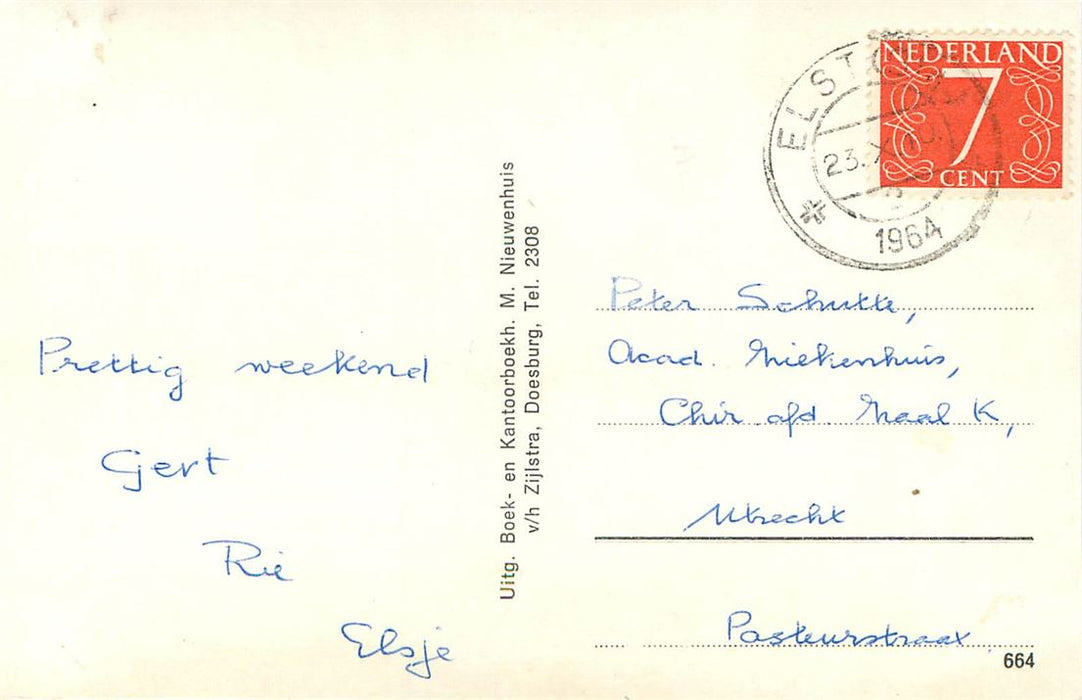 Prettig weekend
Gert
Rie
Elsje
Uitg. Boek- en Kantoorboekh. M. Nieuwenhuis
v/h Zijlstra, Doesburg, Tel. 2308
NEDERLAND
7
CENT
ELST
23.X
1964
Peter Schutte,
Acad. Ziekenhuis,
Chir. afd. Zaal K,
Utrecht
Pasteurstraat
664